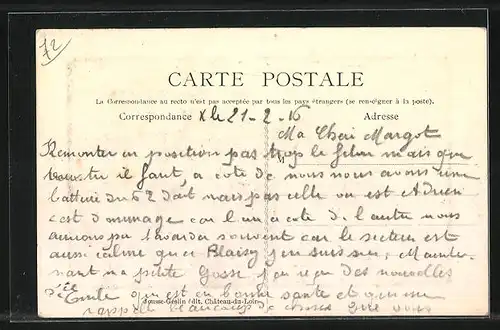 72
CARTE POSTALE
La Correspondance au recto n'est pas acceptée par tous les pays étrangers (se renseigner à la poste).
Correspondance X le 21-2-16 Adresse
Ma Cheri Margot
Remonter en position pas trop le filon mais que
il faut, a cote de nous nous avons une
batterie du 62 dait mais pas celle ou est Adrien
cest dommage car l'un a cote de l'autre nous
aurions pu bavarder souvent car le secteur est
aussi calme que Blaisy j'en suis sur, Mainte-
nant ma petite Gosse j'ai reçu des nouvelles
d'ec qui est en bonne sante et qui me
rappel beaucoup de choses que vous
édit. Château-du-Loir